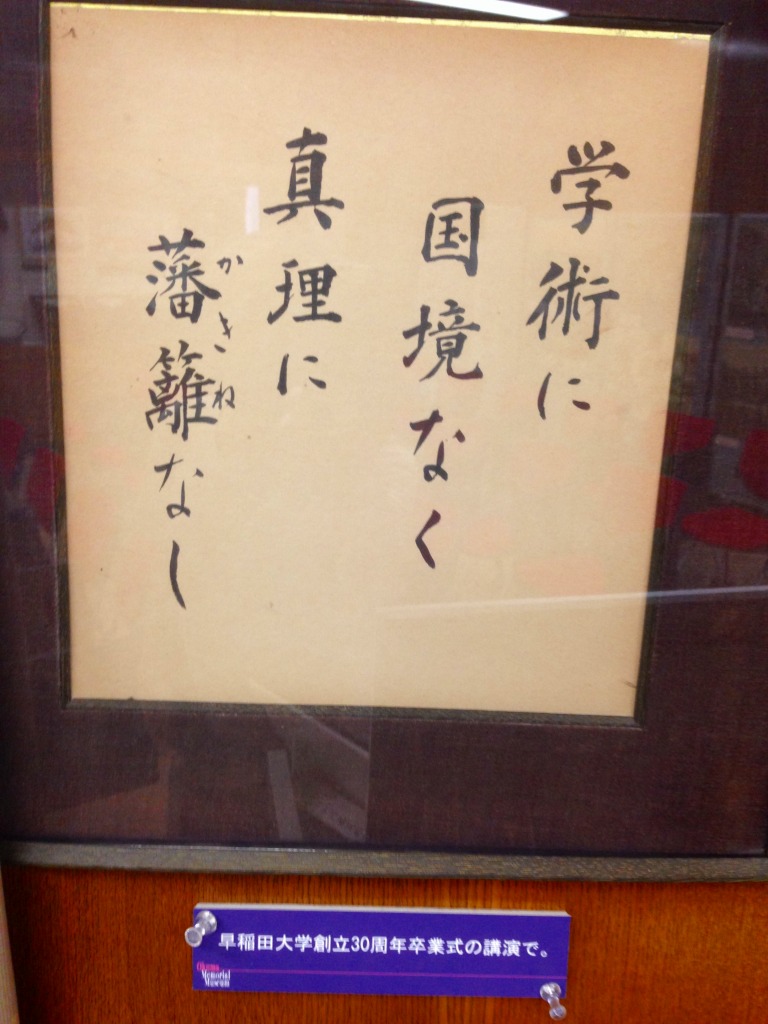 学術に
国境なく
真理に
藩籬なし
かきね
早稲田大学創立30周年卒業式の講演で。
Okuma
Memorial
Museum